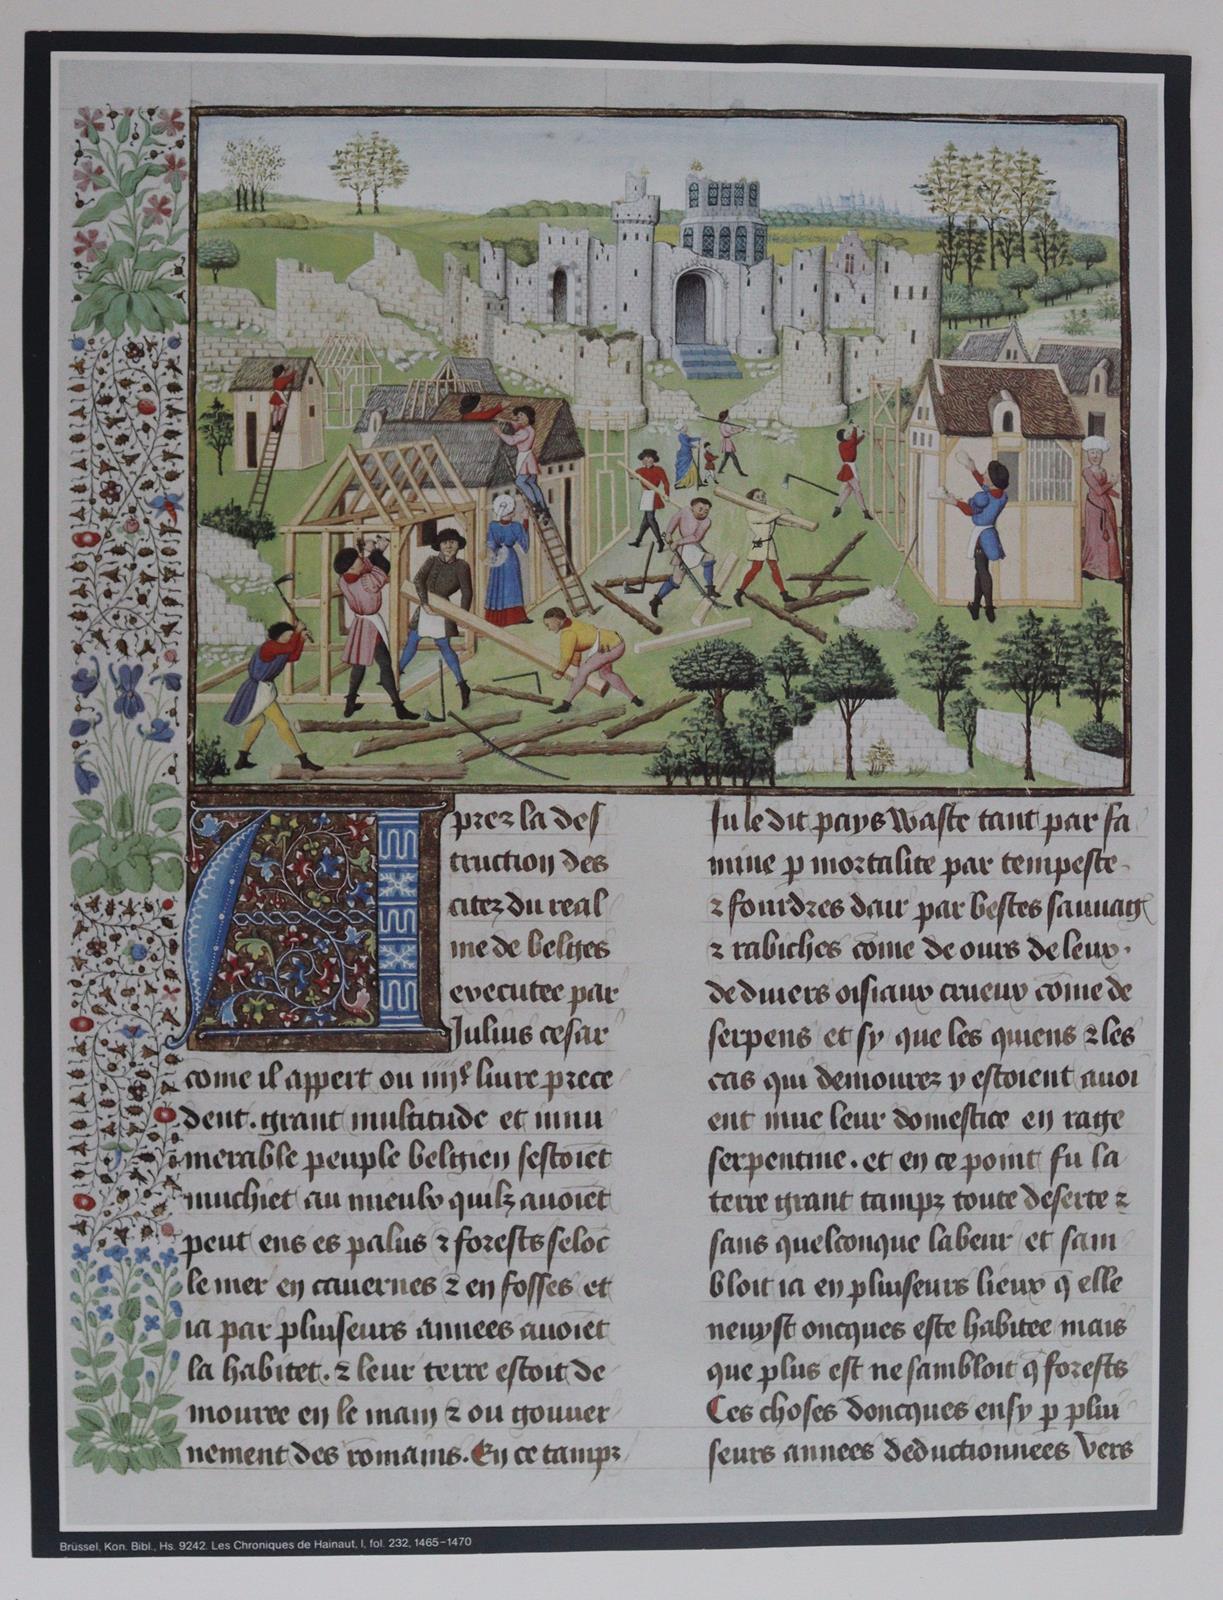 Aprez la des
truction des
citez du real
me de belges
executee par
Julius cesar
come il appert ou iiiie livre prece
dent. grant multitude et innu
merable peuple belgien sestoiet
muchiet au mieulx quilz avoiet
peut ens es palus ⁊ forests seloc
le mer en cavernes ⁊ en fosses et
ia par pluiseurs annees avoiet
la habitet. ⁊ leur terre estoit de
mouree en le main ⁊ ou gouver
nement des romains. En ce tampz
fu le dit pays waste tant par fa
mine p mortalite par tempeste
⁊ fourdres dair par bestes sauvag
⁊ rabiches come de ours de leux.
de divers oisiaux crueux come de
serpens et sy que les quiens ⁊ les
cas qui demourez y estoient avoi
ent mue leur domestice en rage
serpentine. et en ce point fu la
terre grant tampz toute deserte ⁊
sans quelconque labeur et sam
bloit ia en pluiseurs lieux q elle
neuyst oncques este habitee mais
que plus est ne sambloit q forests
Ces choses doncques ensy p plui
seurs annees deductionnees vers
Brüssel, Kon. Bibl., Hs. 9242. Les Chroniques de Hainaut, I, fol. 232, 1465–1470